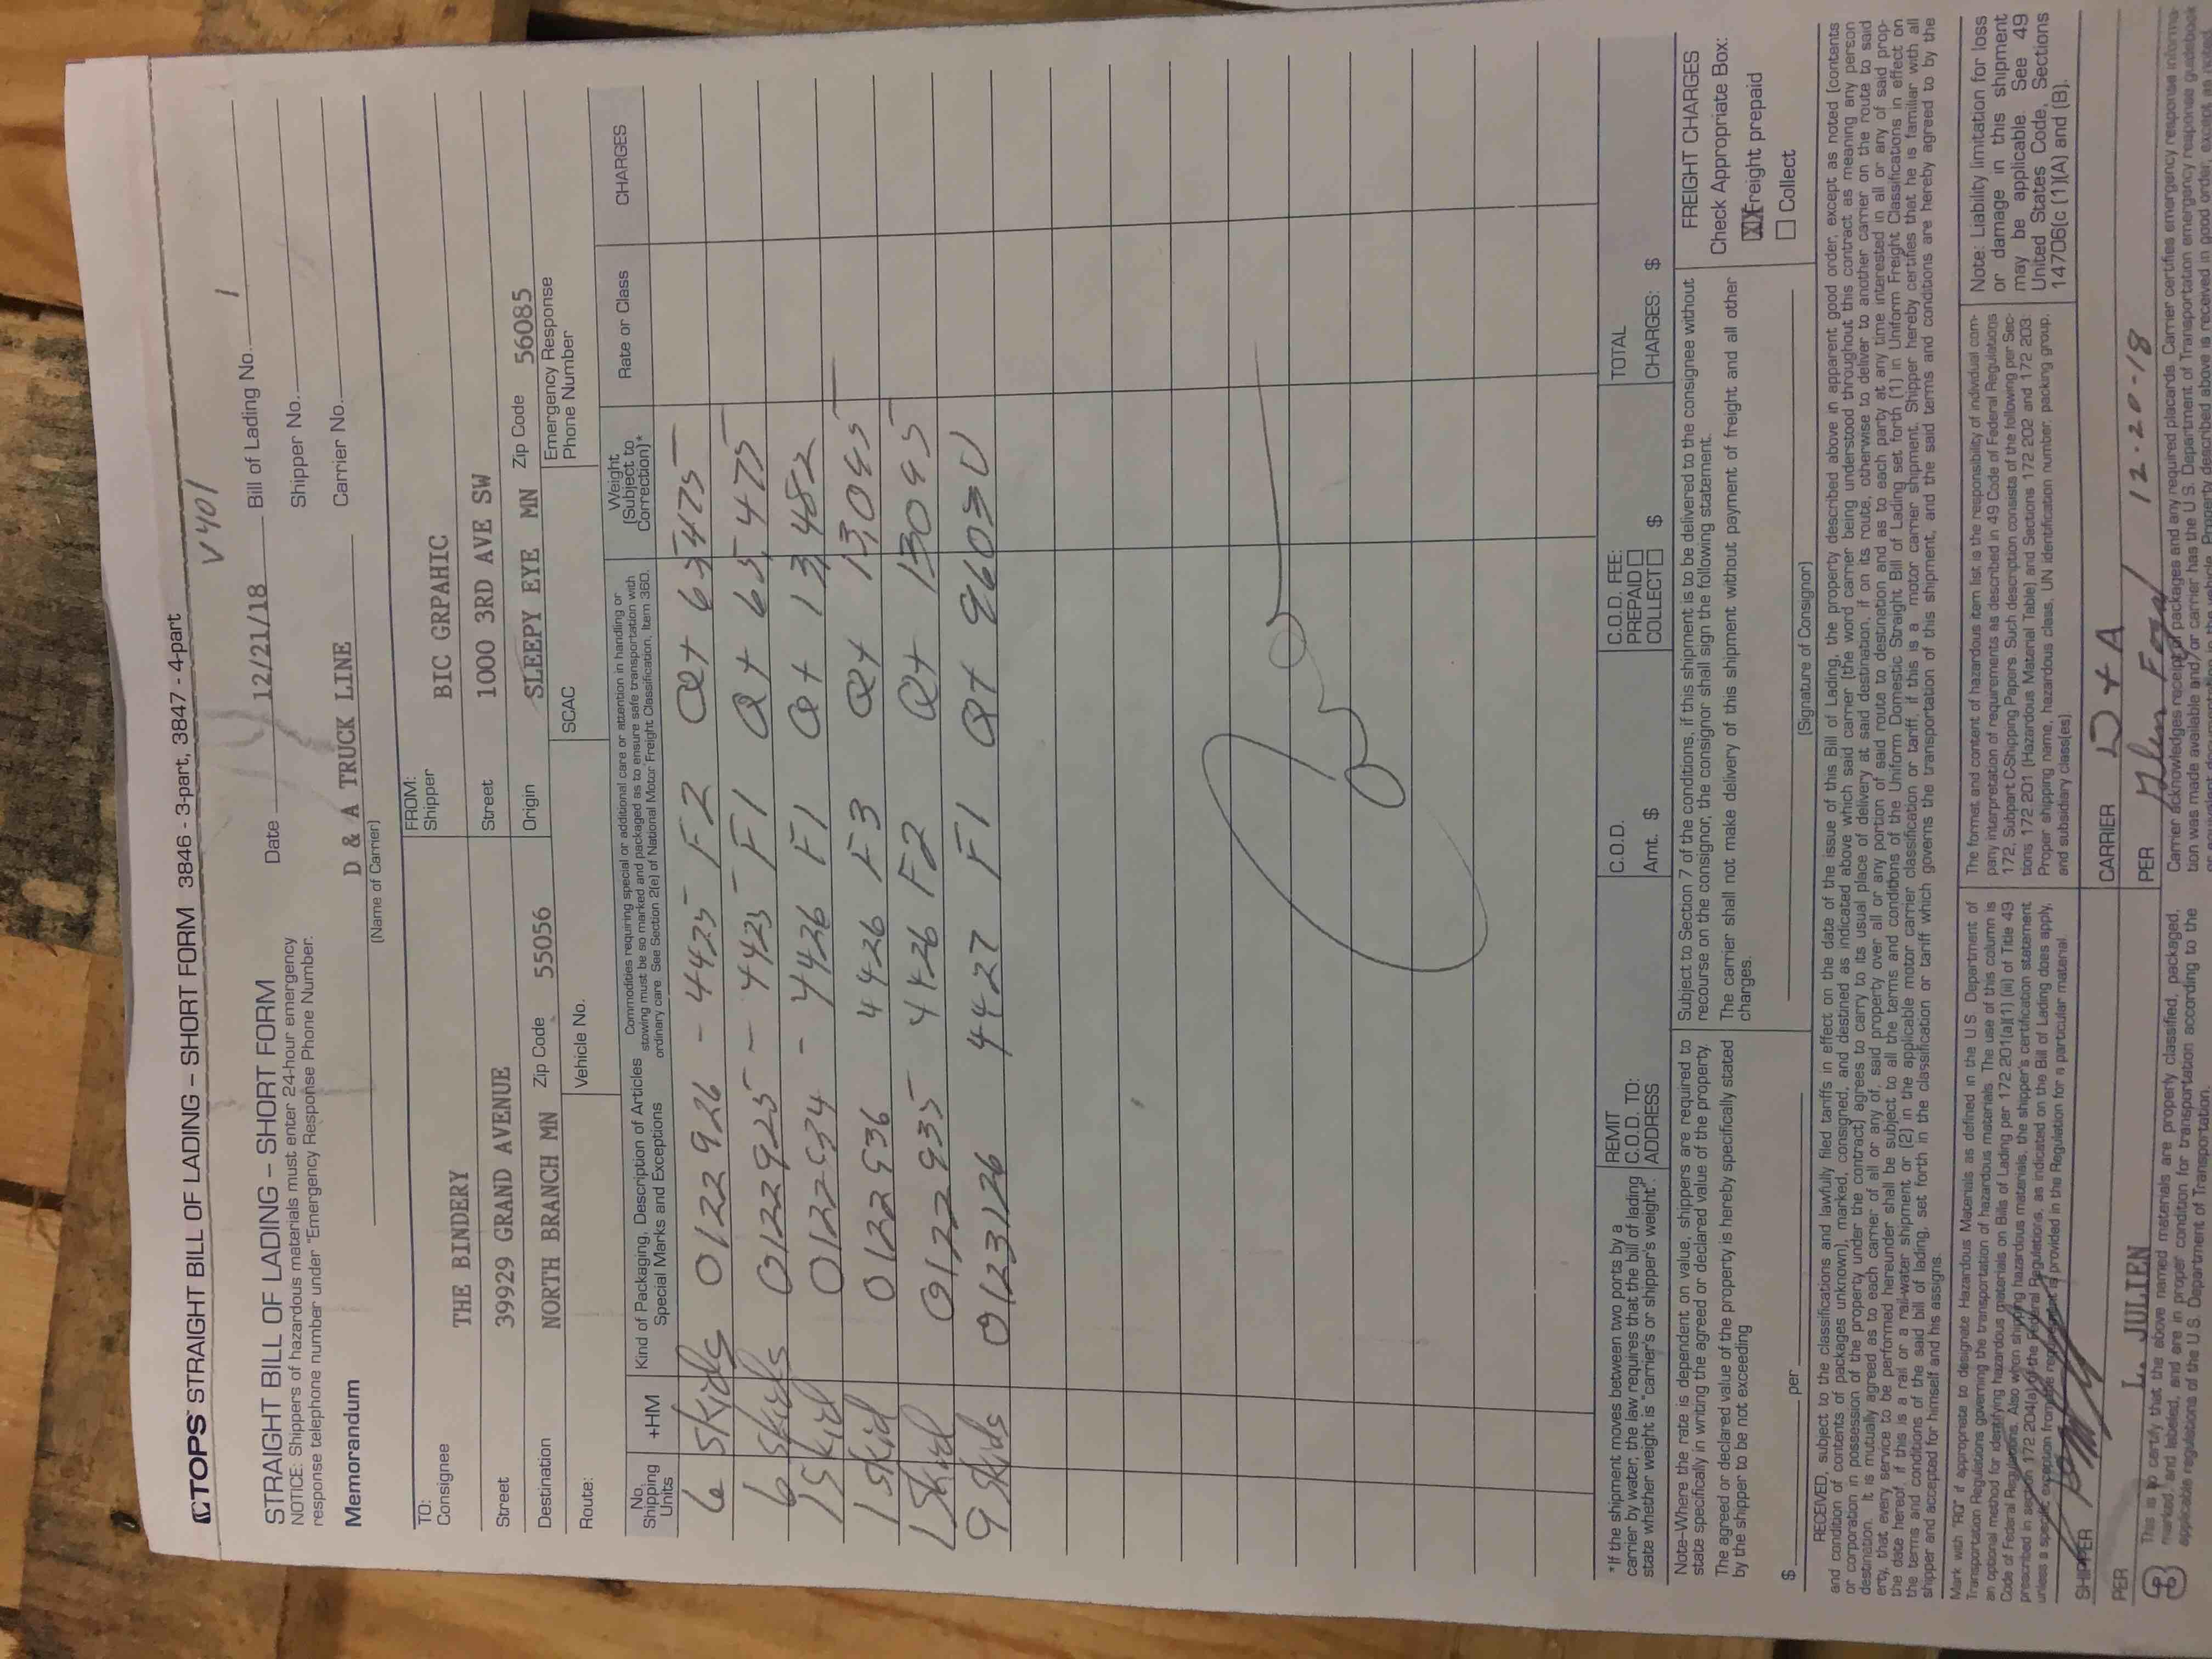 TOPS STRAIGHT BILL OF LADING – SHORT FORM 3846 - 3-part, 3847 - 4-part
V401
STRAIGHT BILL OF LADING – SHORT FORM
NOTICE: Shippers of hazardous materials must enter 24-hour emergency
response telephone number under "Emergency Response Phone Number."
Date 12/21/18 Bill of Lading No. 1
Shipper No.
Memorandum D & A TRUCK LINE Carrier No.
(Name of Carrier)
TO:
Consignee THE BINDERY
FROM:
Shipper BIC GRPAHIC
Street 39929 GRAND AVENUE Street 1000 3RD AVE SW
Destination NORTH BRANCH MN Zip Code 55056 Origin SLEEPY EYE MN Zip Code 56085
Route: Vehicle No. SCAC Emergency Response
Phone Number
No.
Shipping
Units
+HM
Kind of Packaging, Description of Articles
Special Marks and Exceptions
Commodities requiring special or additional care or attention in handling or
stowing must be so marked and packaged as to ensure safe transportation with
ordinary care. See Section 2(e) of National Motor Freight Classification, Item 360.
Weight
(Subject to
Correction)*
Rate or Class
CHARGES
6 Skids 0122926 - 4425 F2 Qt 65475
6 Skids 0122925 - 4425 F1 Qt 65,475
1 Skid 0122934 - 4426 F1 Qt 13,482
1 Skid 0122936 4426 F3 Qt 13,095
1 Skid 0122935 4426 F2 Qt 13095
9 Skids 0123126 4427 F1 Qt 96030
*If the shipment moves between two ports by a
carrier by water, the law requires that the bill of lading
state whether weight is "carrier's or shipper's weight".
REMIT
C.O.D. TO:
ADDRESS
C.O.D.
Amt. $
C.O.D. FEE:
PREPAID
COLLECT $
TOTAL
CHARGES: $
Note–Where the rate is dependent on value, shippers are required to
state specifically in writing the agreed or declared value of the property.
The agreed or declared value of the property is hereby specifically stated
by the shipper to be not exceeding
$ per
Subject to Section 7 of the conditions, if this shipment is to be delivered to the consignee without
recourse on the consignor, the consignor shall sign the following statement.
The carrier shall not make delivery of this shipment without payment of freight and all other
charges.
(Signature of Consignor)
FREIGHT CHARGES
Check Appropriate Box:
XX Freight prepaid
Collect
RECEIVED, subject to the classifications and lawfully filed tariffs in effect on the date of the issue of this Bill of Lading, the property described above in apparent good order, except as noted (contents
and condition of contents of packages unknown), marked, consigned, and destined as indicated above which said carrier (the word carrier being understood throughout this contract as meaning any person
or corporation in possession of the property under the contract) agrees to carry to its usual place of delivery at said destination, if on its route, otherwise to deliver to another carrier on the route to said
destination. It is mutually agreed as to each carrier of all or any of, said property over all or any portion of said route to destination and as to each party at any time interested in all or any of said prop-
erty, that every service to be performed hereunder shall be subject to all the terms and conditions of the Uniform Domestic Straight Bill of Lading set forth (1) in Uniform Freight Classifications in effect on
the date hereof, if this is a rail or a rail-water shipment or (2) in the applicable motor carrier classification or tariff, if this is a motor carrier shipment. Shipper hereby certifies that he is familiar with all
the terms and conditions of the said bill of lading, set forth in the classification or tariff which governs the transportation of this shipment, and the said terms and conditions are hereby agreed to by the
shipper and accepted for himself and his assigns.
Mark with "RQ" if appropriate to designate Hazardous Materials as defined in the U.S. Department of
Transportation Regulations governing the transportation of hazardous materials. The use of this column is
an optional method for identifying hazardous materials on Bills of Lading per 172.201(a)(1) (iii) of Title 49
Code of Federal Regulations. Also when shipping hazardous materials, the shipper's certification statement
prescribed in section 172.204(a) of the Federal Regulations, as indicated on the Bill of Lading does apply,
unless a specific exception from the requirement is provided in the Regulation for a particular material.
The format and content of hazardous item list is the responsibility of individual com-
pany interpretation of requirements as described in 49 Code of Federal Regulations
172, Subpart C-Shipping Papers. Such description consists of the following per Sec-
tions 172.201 (Hazardous Material Table) and Sections 172.202 and 172.203:
Proper shipping name, hazardous class, UN identification number, packing group,
and subsidiary class(es).
Note: Liability limitation for loss
or damage in this shipment
may be applicable. See 49
United States Code, Sections
14706(c (1)(A) and (B).
SHIPPER
CARRIER D + A
PER L. JULIEN
PER 12-20-18
This is to certify that the above named materials are properly classified, packaged,
marked, and labeled, and are in proper condition for transportation according to the
applicable regulations of the U.S. Department of Transportation.
Carrier acknowledges receipt of packages and any required placards. Carrier certifies emergency response informa-
tion was made available and/or carrier has the U.S. Department of Transportation emergency response guidebook
or equivalent documentation in the vehicle. Property described above is received in good order, except as noted.